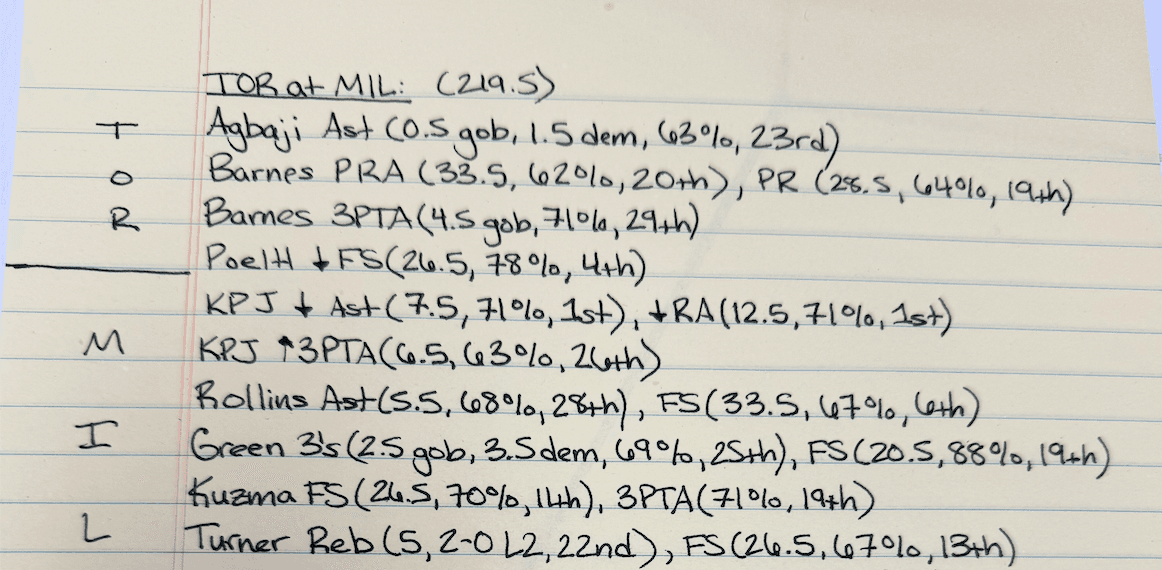 TOR at MIL: (219.5)
T Agbaji Ast (0.5 gob, 1.5 dem, 63%, 23rd)
O Barnes PRA (33.5, 62%, 20th), PR (28.5, 64%, 19th)
R Barnes 3PTA (4.5 gob, 71%, 29th)
Poeltl ↓ FS (26.5, 78%, 4th)
KPJ ↓ Ast (7.5, 71%, 1st), ↓RA (12.5, 71%, 1st)
M KPJ ↑3PTA (6.5, 63%, 26th)
Rollins Ast (5.5, 68%, 28th), FS (33.5, 67%, 6th)
I Green 3's (2.5 gob, 3.5 dem, 69%, 25th), FS (20.5, 88%, 19th)
Kuzma FS (26.5, 70%, 14th), 3PTA (71%, 19th)
L Turner Reb (5, 2-0 L2, 22nd), FS (26.5, 67%, 13th)